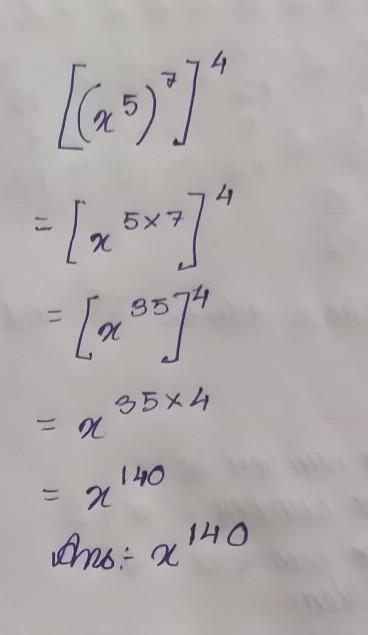 [(x^5)^7]^4
= [x^{5×7}]^4
= [x^{35}]^4
= x^{35×4}
= x^{140}
Ans:- x^{140}